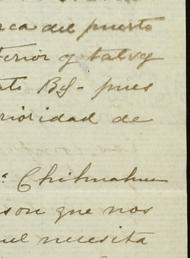 rca del puerto
terior y talvez
pues
rioridad de
Chihuahua
son que nos
necesita